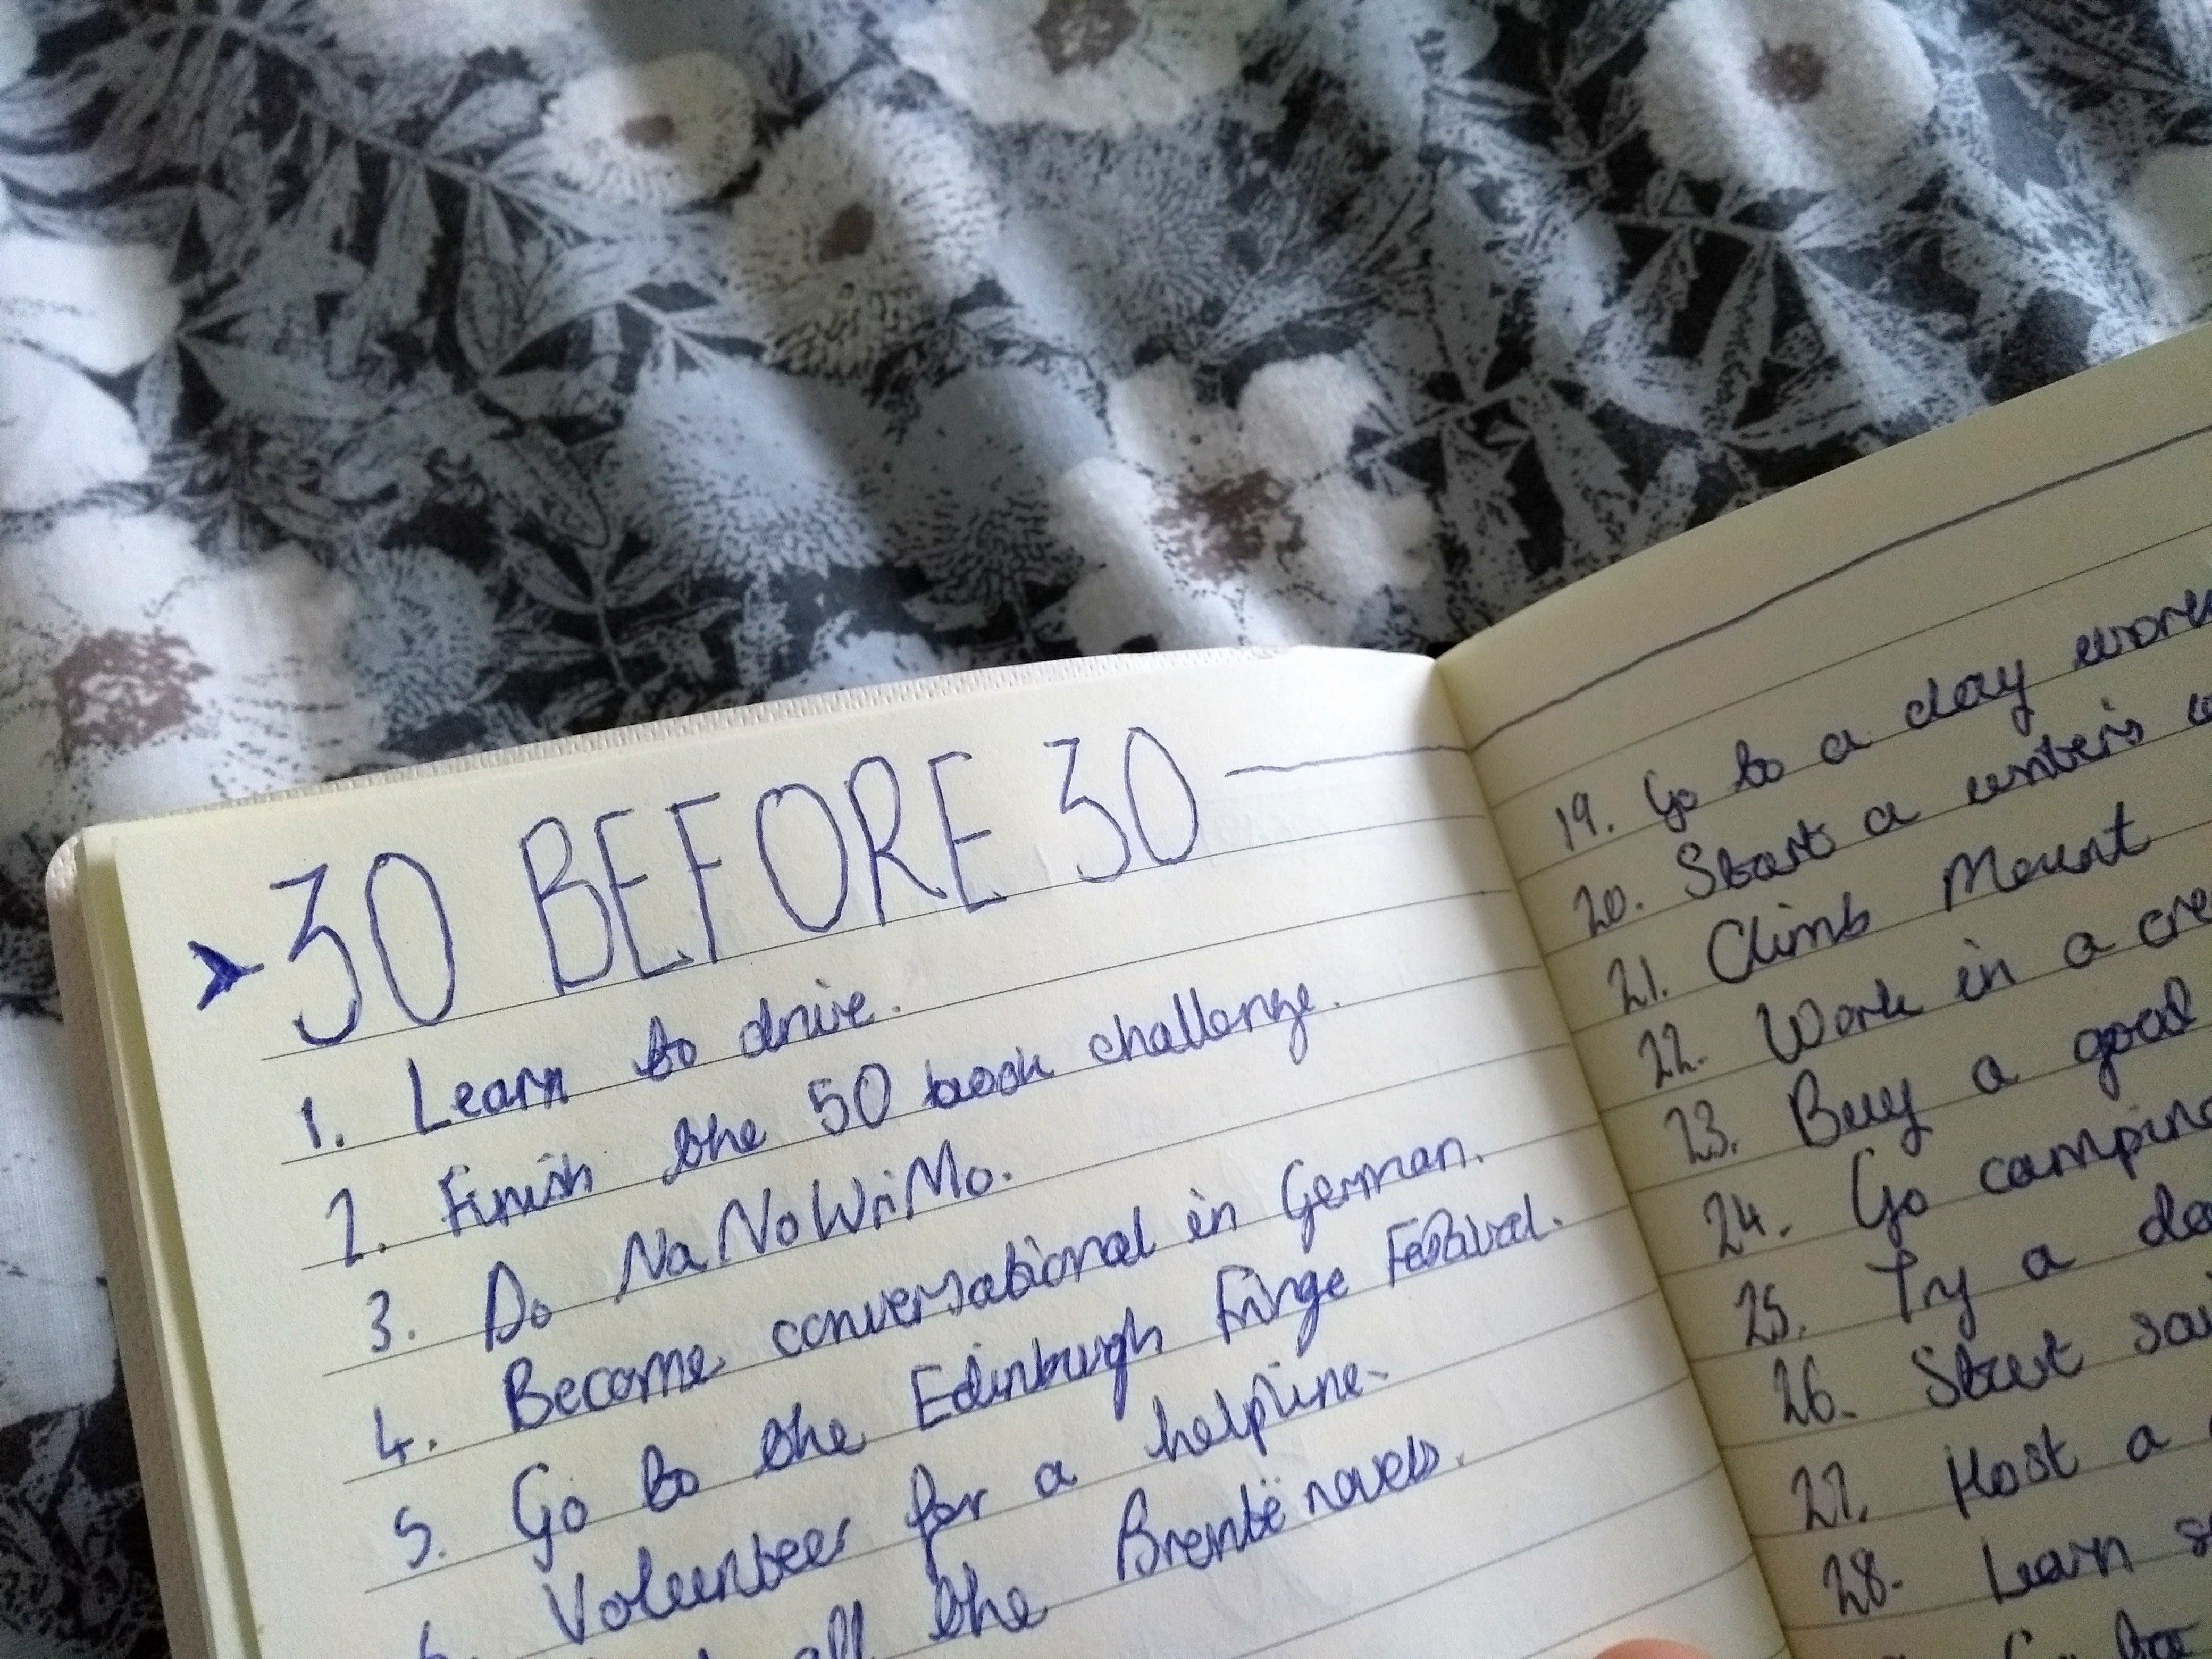 30 BEFORE 30
1. Learn to drive.
2. Finish the 50 book challenge.
3. Do NaNoWriMo.
4. Become conversational in German.
5. Go to the Edinburgh Fringe Festival.
6. Volunteer for a helpline.
all the Brontë novels.
19. Go to a day
20. Start a writer's
21. Climb Mount
22. Work in a
23. Buy a good
24. Go camping
25. Try a
26. Start
27. Host a
28. Learn